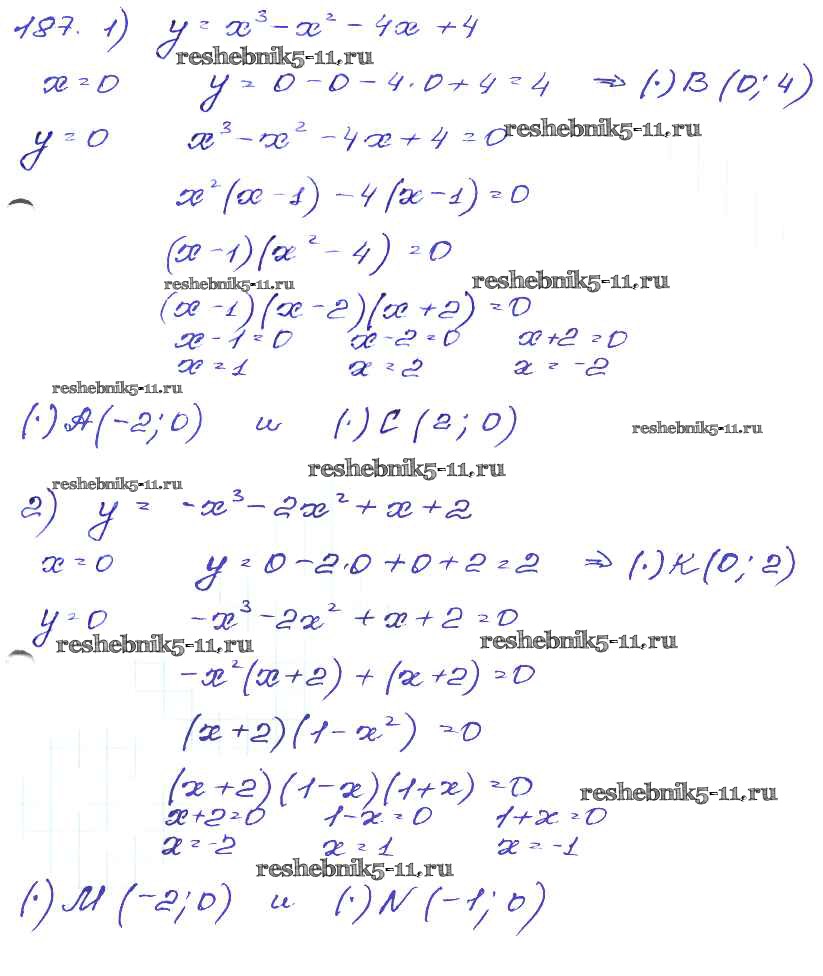 187. 1) y = x³ - x² - 4x + 4
reshebnik5-11.ru
x = 0 y = 0 - 0 - 4·0 + 4 = 4 ⇒ (·) B (0; 4)
y = 0 x³ - x² - 4x + 4 = 0 reshebnik5-11.ru
x² (x - 1) - 4 (x - 1) = 0
(x - 1) (x² - 4) = 0
reshebnik5-11.ru reshebnik5-11.ru
(x - 1) (x - 2) (x + 2) = 0
x - 1 = 0 x - 2 = 0 x + 2 = 0
x = 1 x = 2 x = -2
reshebnik5-11.ru
(·) A (-2; 0) и (·) C (2; 0)
reshebnik5-11.ru
reshebnik5-11.ru
reshebnik5-11.ru
2) y = -x³ - 2x² + x + 2
x = 0 y = 0 - 2·0 + 0 + 2 = 2 ⇒ (·) K (0; 2)
y = 0 -x³ - 2x² + x + 2 = 0
reshebnik5-11.ru reshebnik5-11.ru
-x² (x + 2) + (x + 2) = 0
(x + 2) (1 - x²) = 0
(x + 2) (1 - x) (1 + x) = 0
reshebnik5-11.ru
x + 2 = 0 1 - x = 0 1 + x = 0
x = -2 x = 1 x = -1
reshebnik5-11.ru
(·) M (-2; 0) и (·) N (-1; 0)